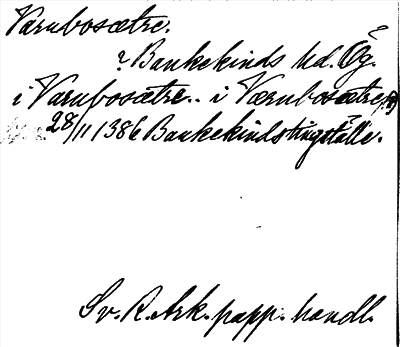 Varubosætre.
? Bankekinds hd. Ög.
i Varubosætre.. iVærnbosætre
28/11 1386 Bankekinds tingställe.
Sv. R. Ark. papp. handl.